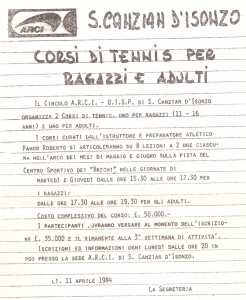 ARCI
S. CANZIAN D'ISONZO
CORSI DI TENNIS PER
RAGAZZI E ADULTI
IL CIRCOLO A.R.C.I. - U.I.S.P. DI S. CANZIAN D'ISONZO
ORGANIZZA 2 CORSI DI TENNIS, UNO PER RAGAZZI (11 - 16
ANNI) E UNO PER ADULTI.
I CORSI CURATI DALL'ISTRUTTORE E PREPARATORE ATLETICO
PAHOR ROBERTO SI ARTICOLERANNO SU 8 LEZIONI A 2 ORE CIASCU-
NA NELL'ARCO DEI MESI DI MAGGIO E GIUGNO SULLA PISTA DEL
CENTRO SPORTIVO DEI "BECHI" NELLE GIORNATE DI
MARTEDÌ E GIOVEDÌ DALLE ORE 15.30 ALLE ORE 17.30 PER
I RAGAZZI;
DALLE ORE 17.30 ALLE ORE 19.30 PER GLI ADULTI.
COSTO COMPLESSIVO DEL CORSO: £. 50.000.-
I PARTECIPANTI POTRANNO VERSARE AL MOMENTO DELL'ISCRIZIO-
NE £. 35.000 E IL RIMANENTE ALLA 3ª SETTIMANA DI ATTIVITA'.
ISCRIZIONI ED INFORMAZIONI OGNI LUNEDÌ DALLE ORE 20 IN
POI PRESSO LA SEDE A.R.C.I. DI S. CANZIAN D'ISONZO.
LÌ, 11 APRILE 1984
LA SEGRETERIA